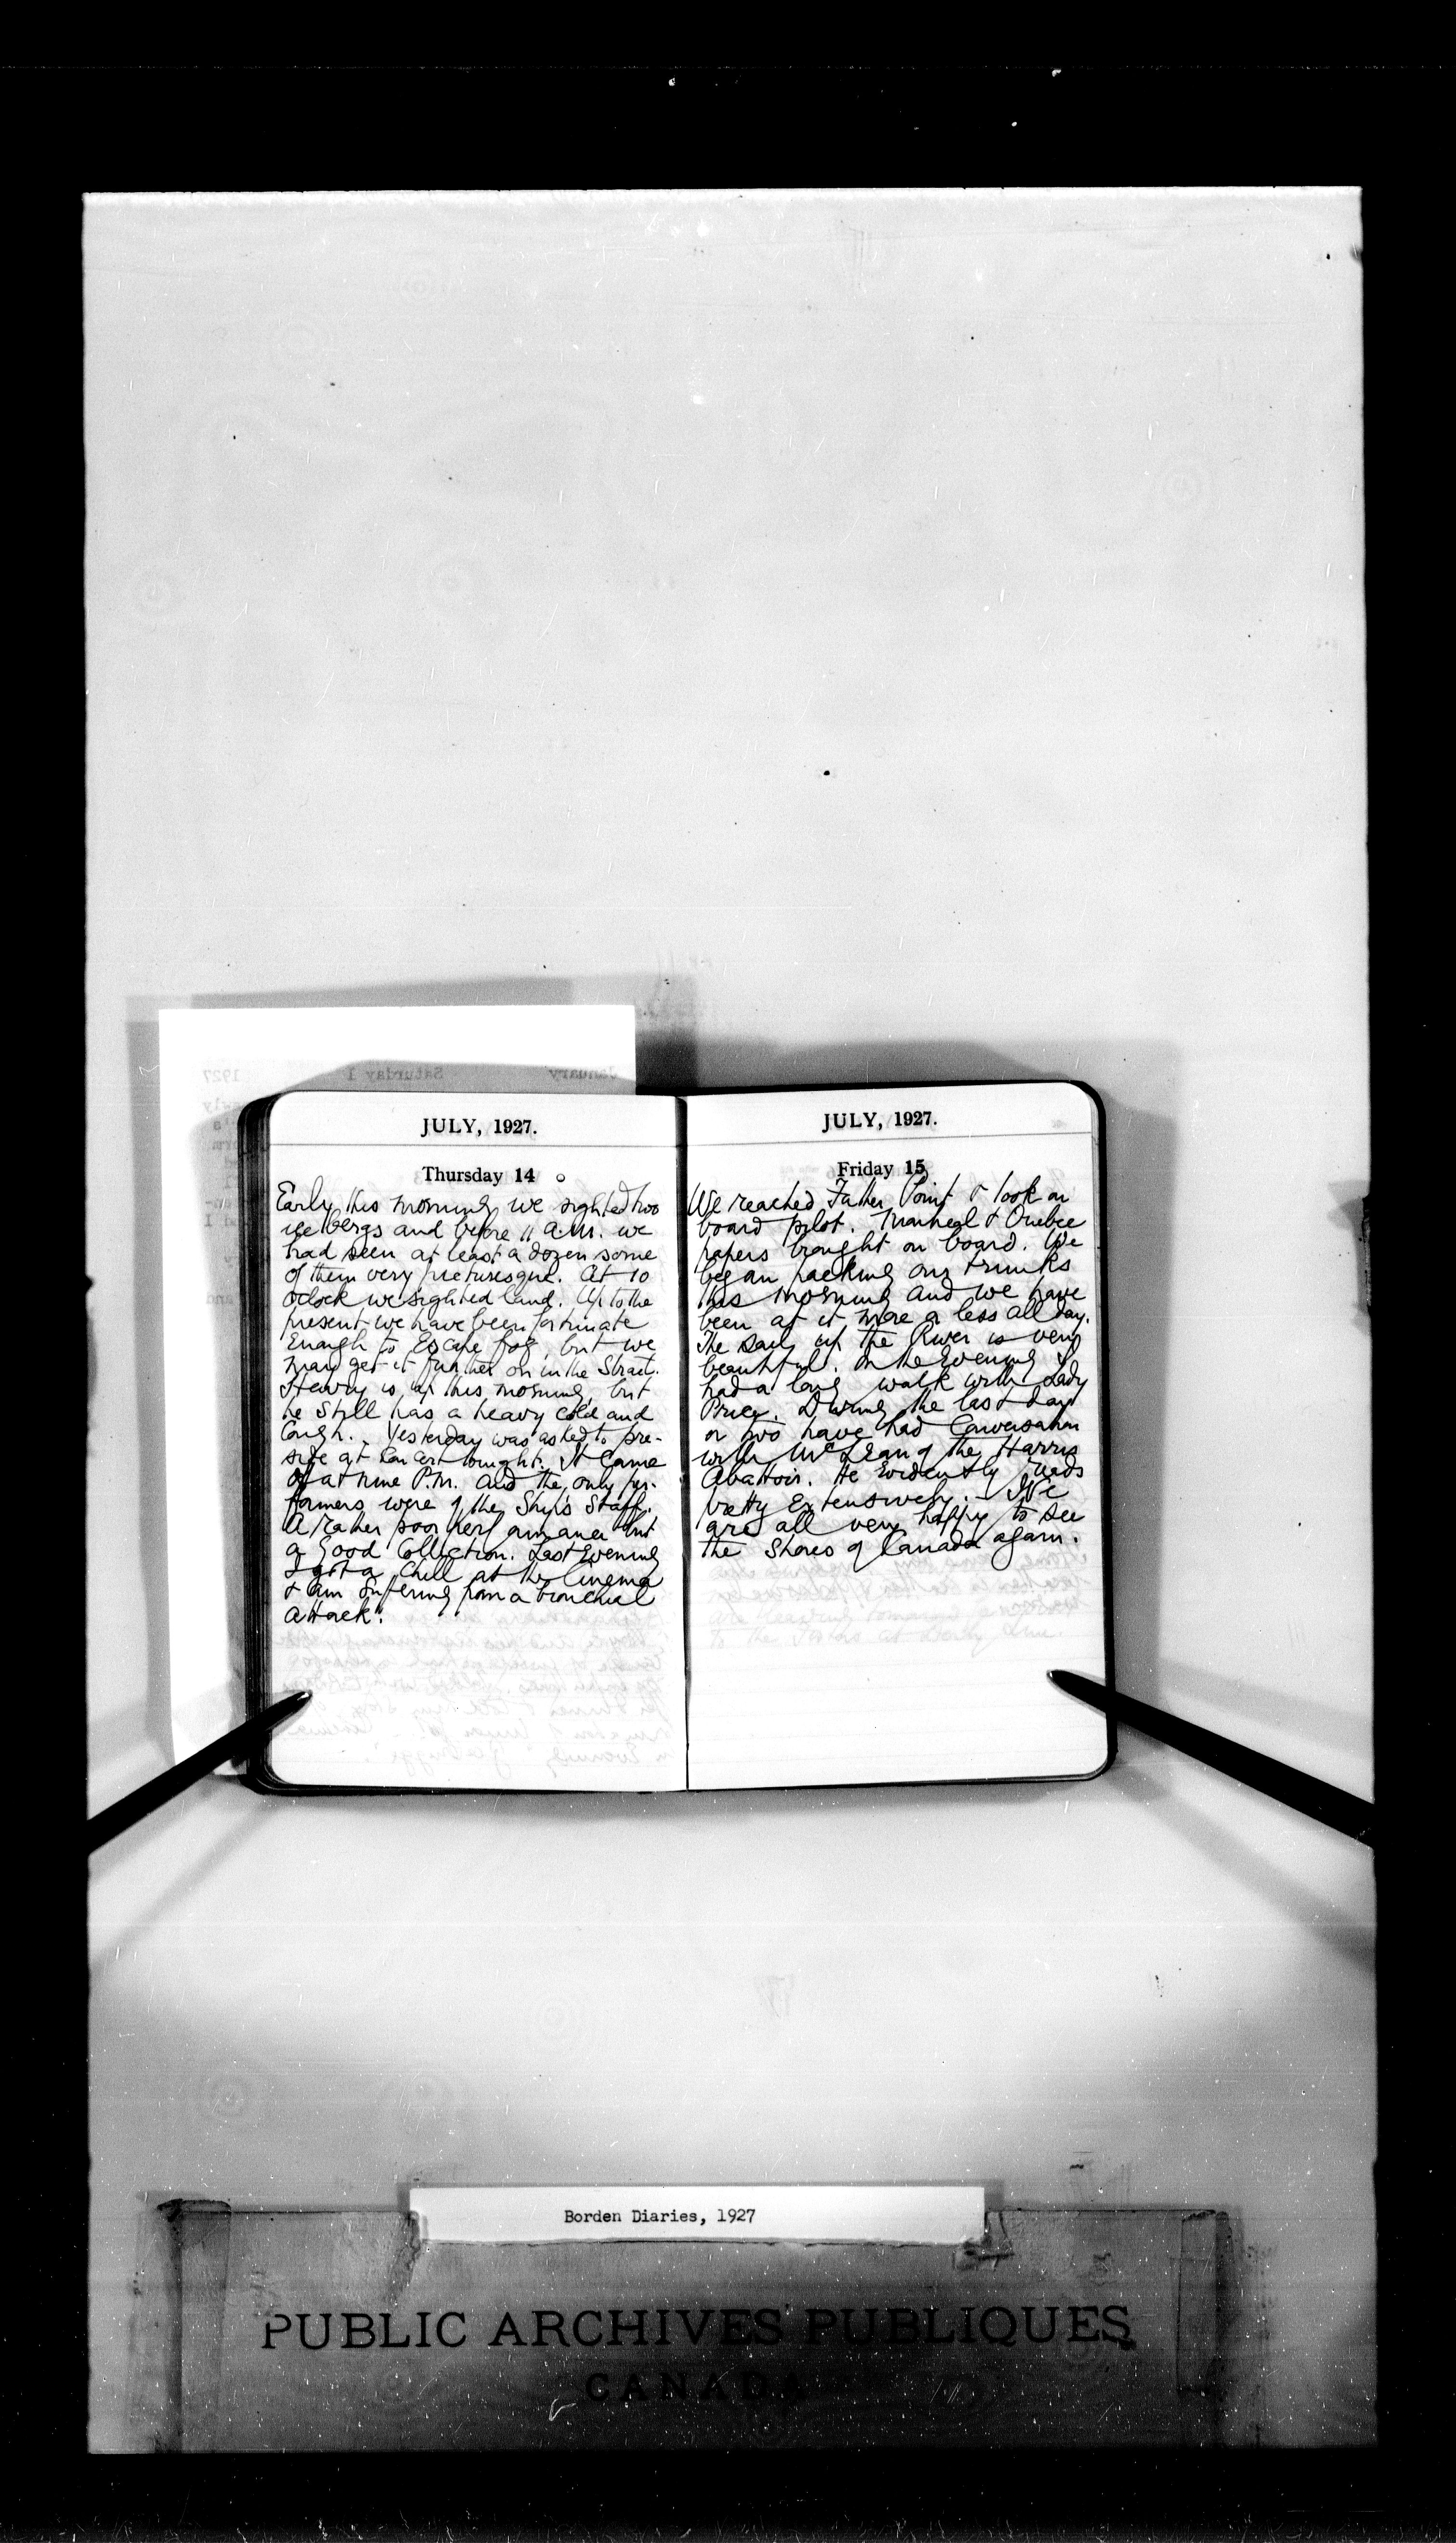 JULY, 1927.
Thursday 14
Early this morning we sighted two
ice bergs and before 11 a.m. we
had seen at least a dozen some
of them very picturesque. At 10
oclock we sighted land. Up to the
present we have been fortunate
Enough to Escape fog, but we
may get it further on in the Strait.
Henry is up this morning, but
he still has a heavy cold and
Cough. Yesterday was asked to pre-
side at Concert tonight. It Came
off at nine P.M. and the only per-
formers were of the Ship's Staff.
A rather poor performance but
a Good Collection. Last Evening
I got a Chill at the Cinema
& am suffering from a bronchial
attack.
JULY, 1927.
Friday 15
We reached Father Point & took on
board pilot. Montreal & Quebec
papers brought on board. We
began packing our trunks
this morning and we have
been at it more or less all day.
The Sail up the River is very
beautiful. In the Evening I
had a long walk with Lady
Price. During the last day
or two have had Conversation
with McLean of the Harris
Abattoir. He Evidently reads
pretty Extensively. We
are all very happy to see
the Shores of Canada again.
January Saturday 1 1927
Borden Diaries, 1927
PUBLIC ARCHIVES PUBLIQUES
CANADA